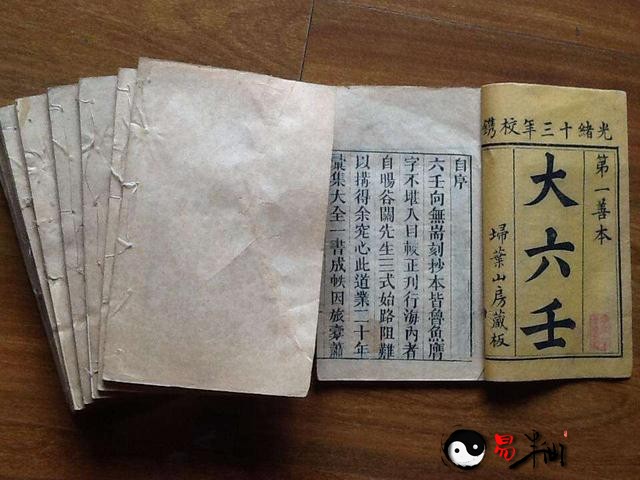 光緒十三年校鐫
第一善本
大六壬
埽葉山房藏板
自序
六壬向無耑刻抄本皆魯魚贋
字不堪入目較正刊行海內者
自暘谷闗先生三式始路阻難
以搆得余究心此道業二十年
彙集大全一書成帙因旅橐蕭
易半仙